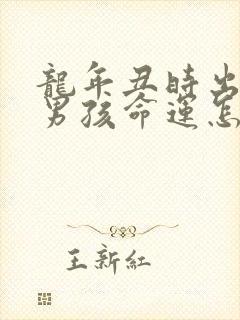 龍年丑時出
男孩命運怎
王新紅